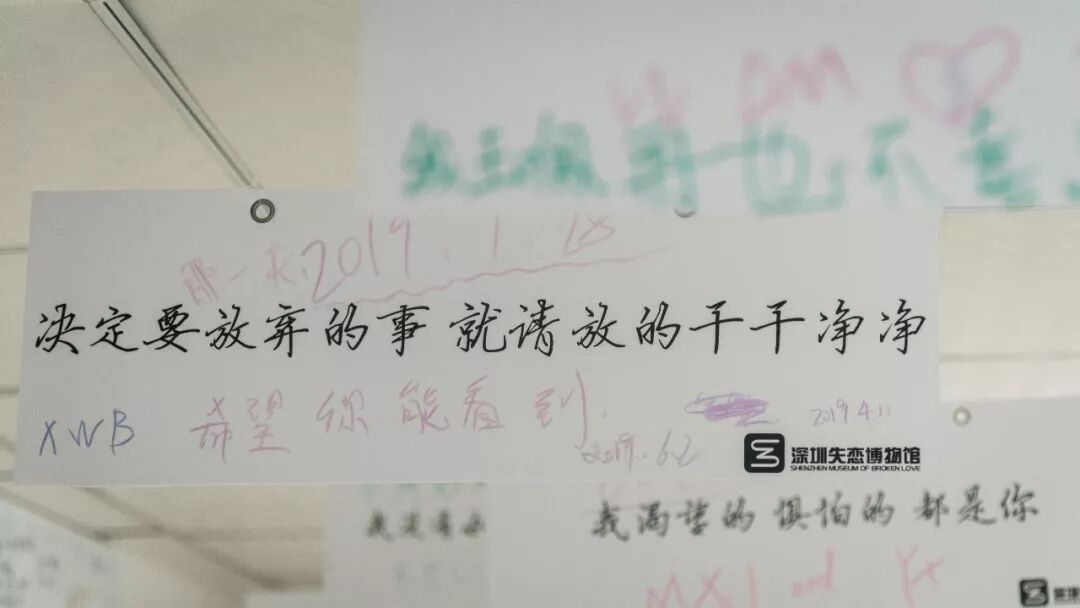 DM
也不
那一天.2019.1.18
决定要放弃的事 就请放的干干净净
XWB 希望你能看到.
2019.6.2
2019.4.11
深圳失恋博物馆
SHENZHEN MUSEUM OF BROKEN LOVE
我渴望的 惧怕的 都是你
and
深圳